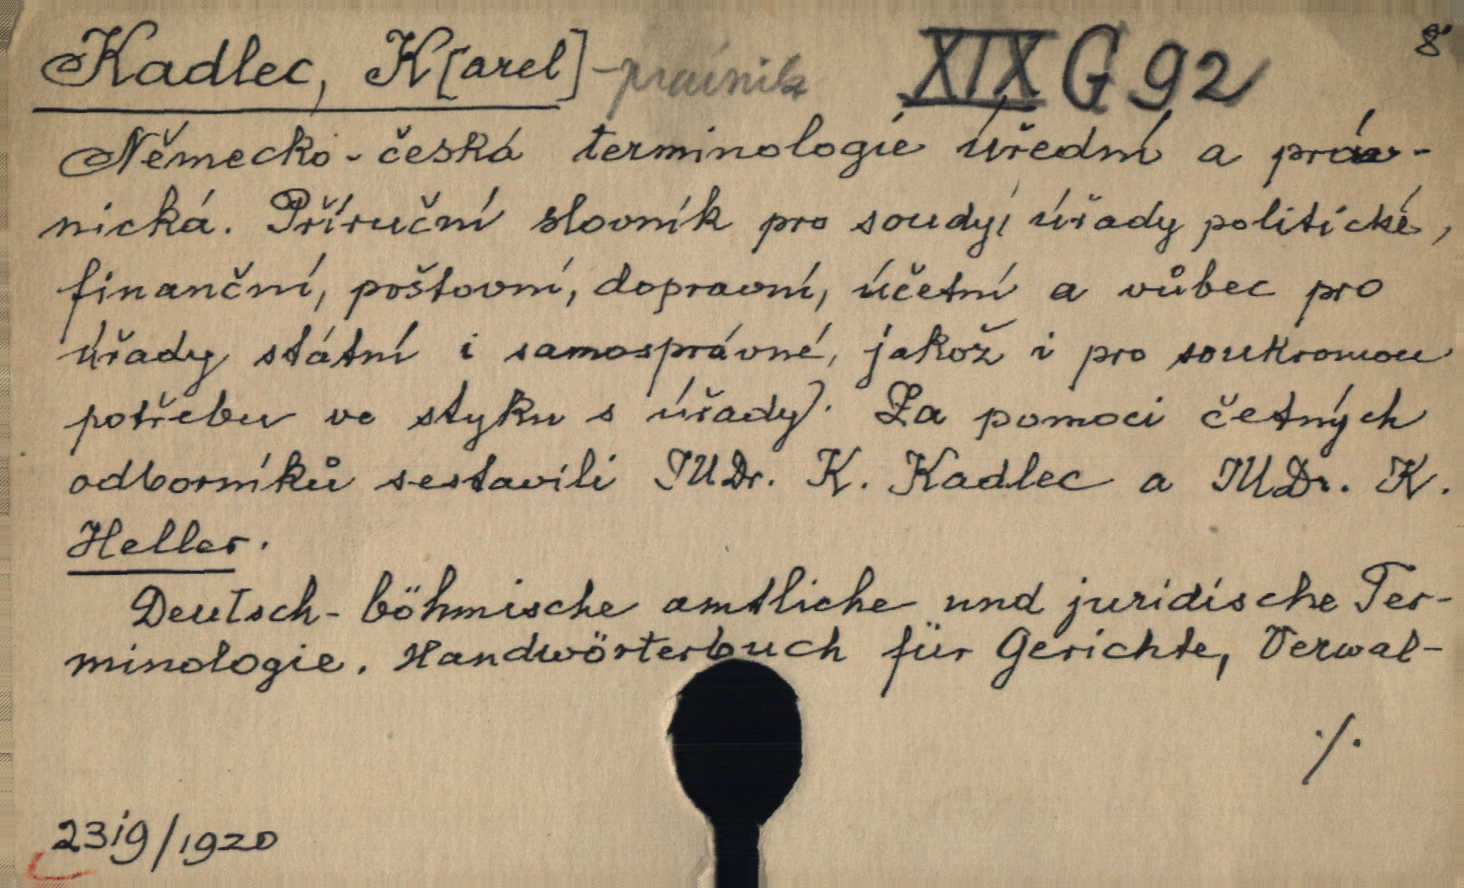 Kadlec, K[arel] - právník XIX G 92 8°
Německo-česká terminologie úřední a práv-
nická. Příruční slovník pro soudy, úřady politické,
finanční, poštovní, dopravní, účetní a vůbec pro
úřady státní i samosprávné, jakož i pro soukromou
potřebu ve styku s úřady). Za pomoci četných
odborníků sestavili JUDr. K. Kadlec a JUDr. K.
Heller.
Deutsch-böhmische amtliche und juridische Ter-
minologie. Handwörterbuch für Gerichte, Verwal-
./.
2319/1920